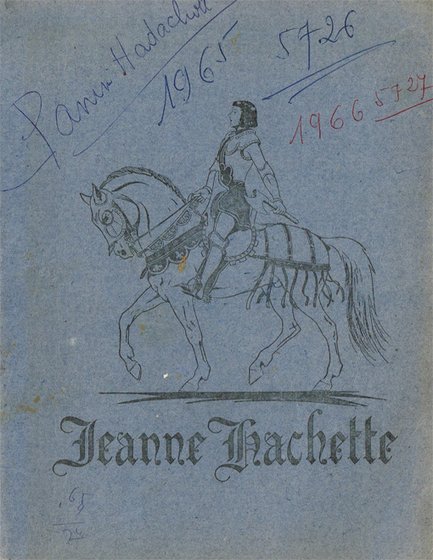 Panim Hadachot
1965 5726
1966 5727
Jeanne Hachette
65
26